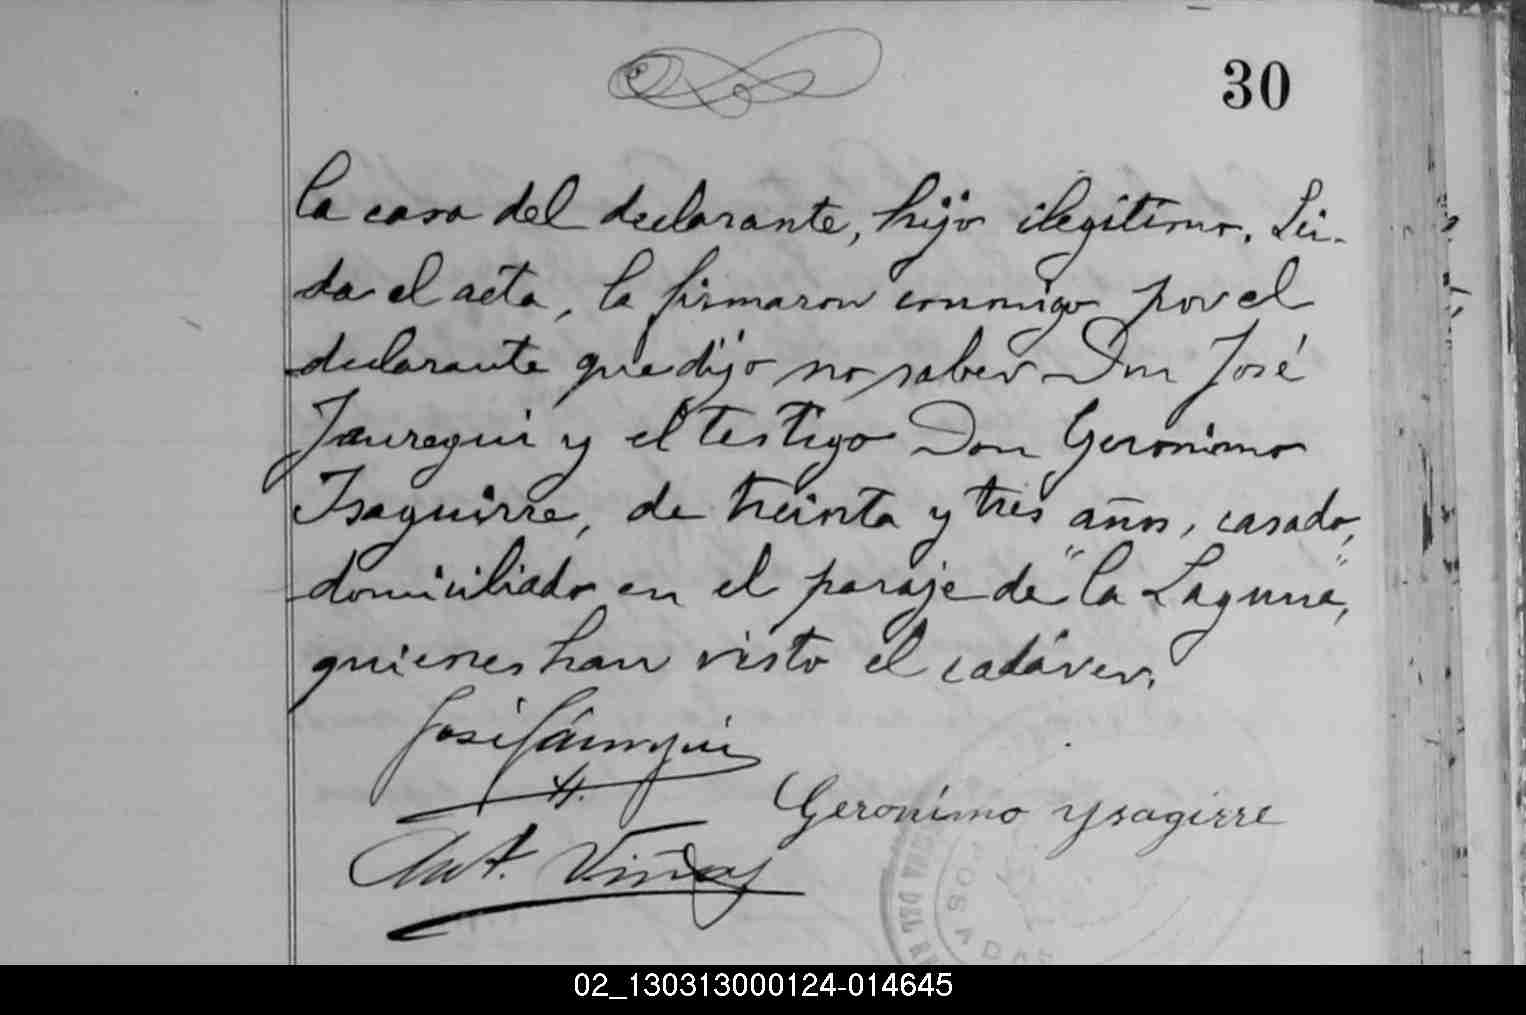 30
la casa del declarante, hijo ilegítimo. Lei-
da el acta, la firmaron conmigo por el
declarante que dijo no saber Don José
Jauregui y el testigo Don Geronimo
Isaguirre, de treinta y tres años, casado,
domiciliado en el paraje de "la Laguna",
quienes han visto el cadáver.
José Jáuregui
H.
Geronimo Ysagirre
Ant. Viñas
POSADAS
02_130313000124-014645